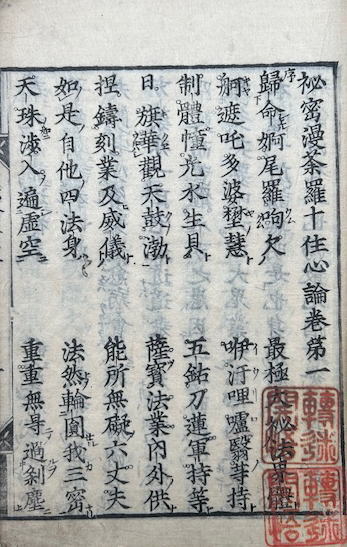 祕密漫荼羅十住心論卷第一
序
歸命婀尾羅呴欠 最極大祕法界體
舸遮吒多波壄慧 咿汙哩嚧翳等持
制體幢光水生貝 五鈷刀蓮軍持等
日旗華觀天鼓渤 薩寶法業內外供
捏鑄刻業及威儀 能所無礙六丈夫
如是自他四法身 法然輪圓我三密
天珠渉入遍虛空 重重無导過刹塵
轉迷開悟
轉迷開悟